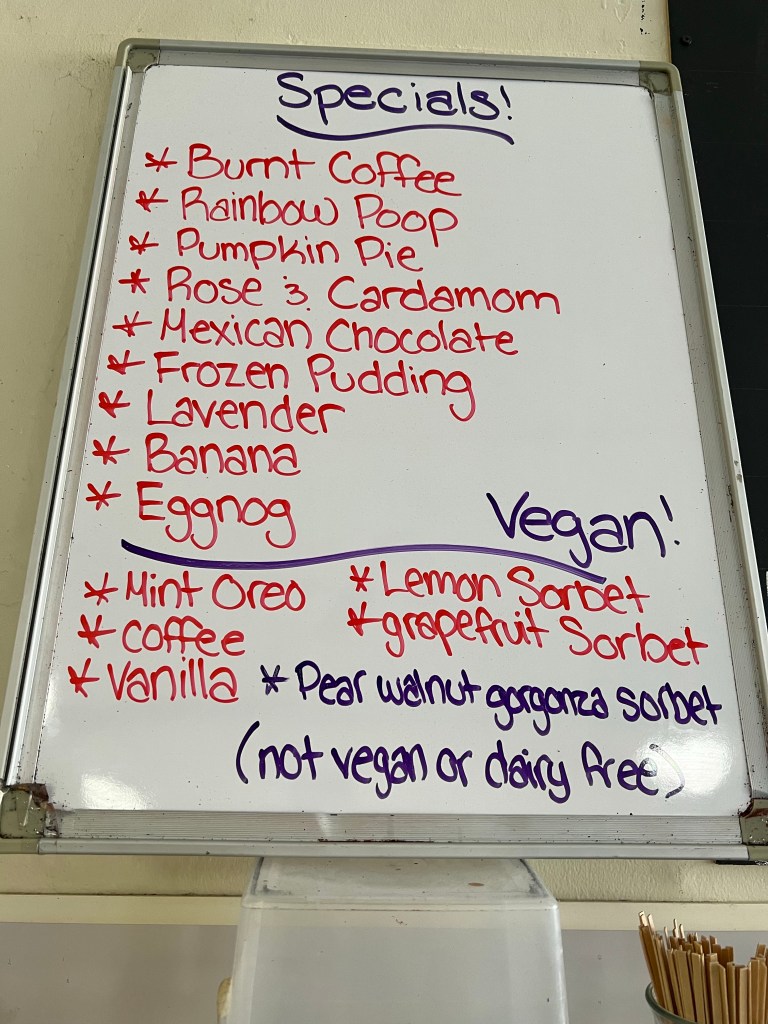 Specials!
* Burnt Coffee
* Rainbow Poop
* Pumpkin Pie
* Rose & Cardamom
* Mexican Chocolate
* Frozen Pudding
* Lavender
* Banana
* Eggnog
Vegan!
* Mint Oreo
* Coffee
* Vanilla
* Lemon Sorbet
* grapefruit Sorbet
* Pear walnut gorgonza sorbet
(not vegan or dairy free)